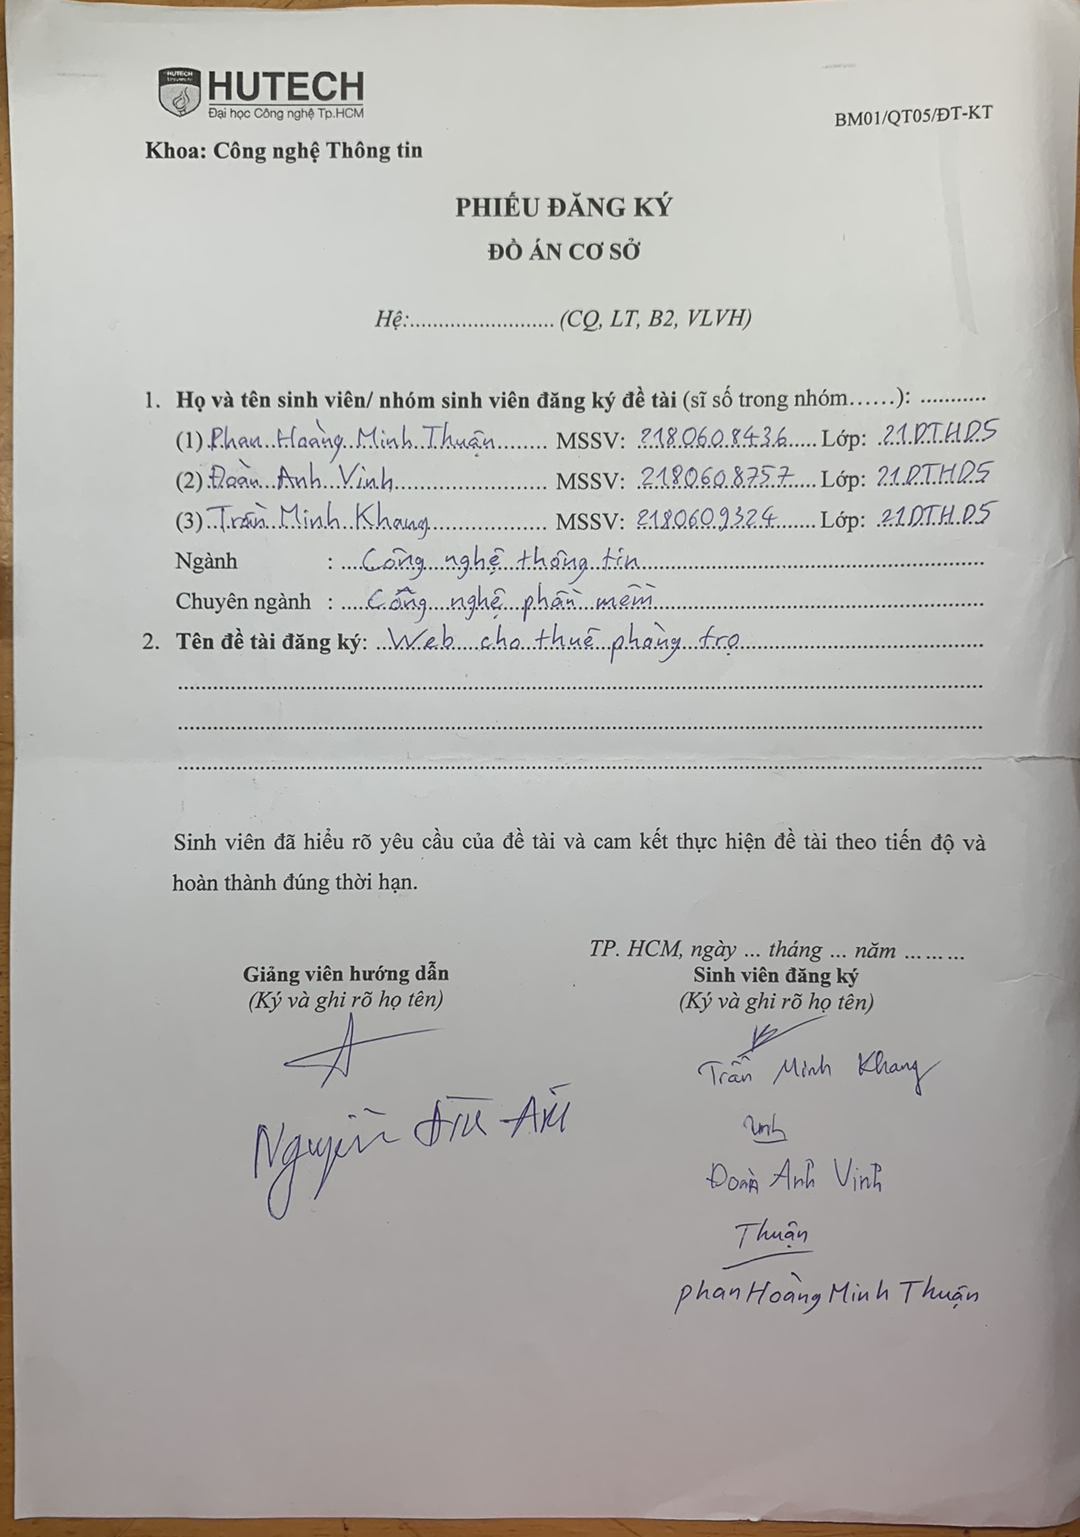 HUTECH
HUTECH
Đại học Công nghệ Tp.HCM
BM01/QT05/ĐT-KT
Khoa: Công nghệ Thông tin
PHIẾU ĐĂNG KÝ
ĐỒ ÁN CƠ SỞ
Hệ:.......................... (CQ, LT, B2, VLVH)
1. Họ và tên sinh viên/ nhóm sinh viên đăng ký đề tài (sĩ số trong nhóm……): ............
(1) Phan Hoàng Minh Thuận ........ MSSV: 2180608436 ..... Lớp: 21DTHD5
(2) Đoàn Anh Vinh ........ MSSV: 2180608757 .... Lớp: 21DTHD5
(3) Trần Minh Khang ........ MSSV: 2180609324 ....... Lớp: 21DTHD5
Ngành : ... Công nghệ thông tin ........
Chuyên ngành : .... Công nghệ phần mềm ........
2. Tên đề tài đăng ký: ... Web cho thuê phòng trọ ........
Sinh viên đã hiểu rõ yêu cầu của đề tài và cam kết thực hiện đề tài theo tiến độ và
hoàn thành đúng thời hạn.
TP. HCM, ngày ... tháng ... năm ………
Giảng viên hướng dẫn Sinh viên đăng ký
(Ký và ghi rõ họ tên) (Ký và ghi rõ họ tên)
Trần Minh Khang
Nguyễn
Đoàn Anh Vinh
Thuận
phan Hoàng Minh Thuận